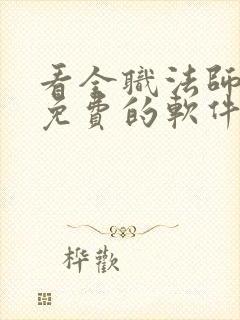 看全職法師
免費的軟件
樺歡